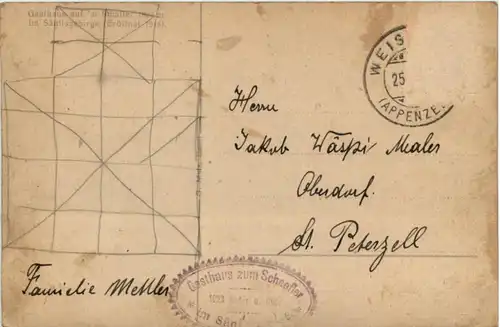 Gasthaus auf
Im Säntisgebirge
WEIS
25
(APPENZE
Herrn
Jakob Wäspi Maler
Oberdorf.
St. Peterzell
Familie Mettler
Gasthaus zum Schaefler
im Sän